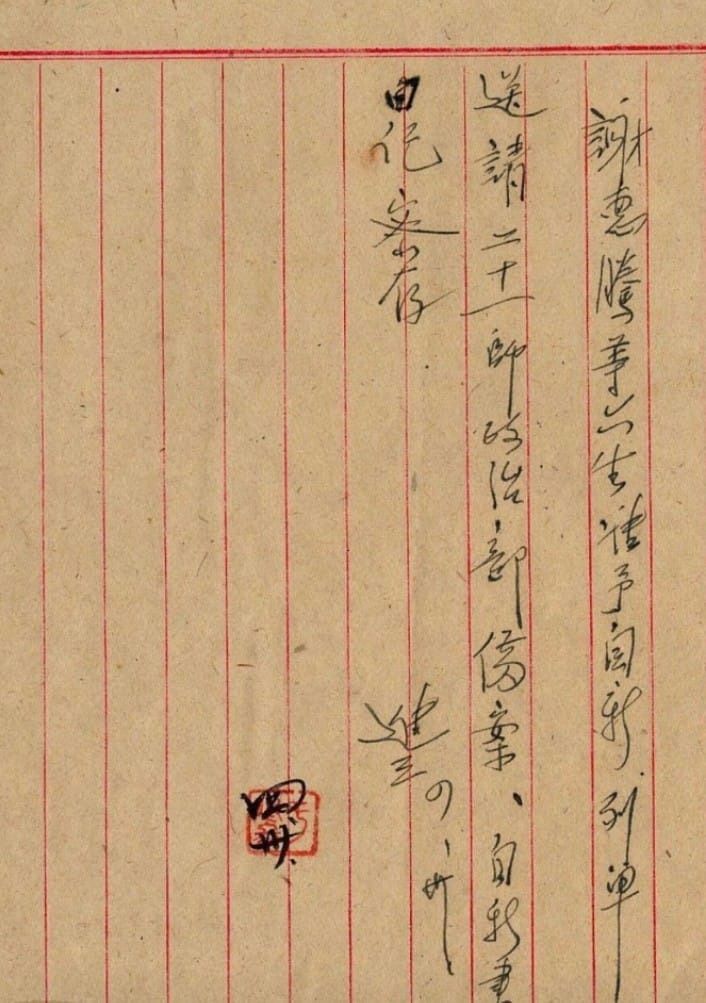 謝惠騰等六生准予自新列單
送請二十一師政治部備案、自新書
由紀密存
四、卅、
四卅、